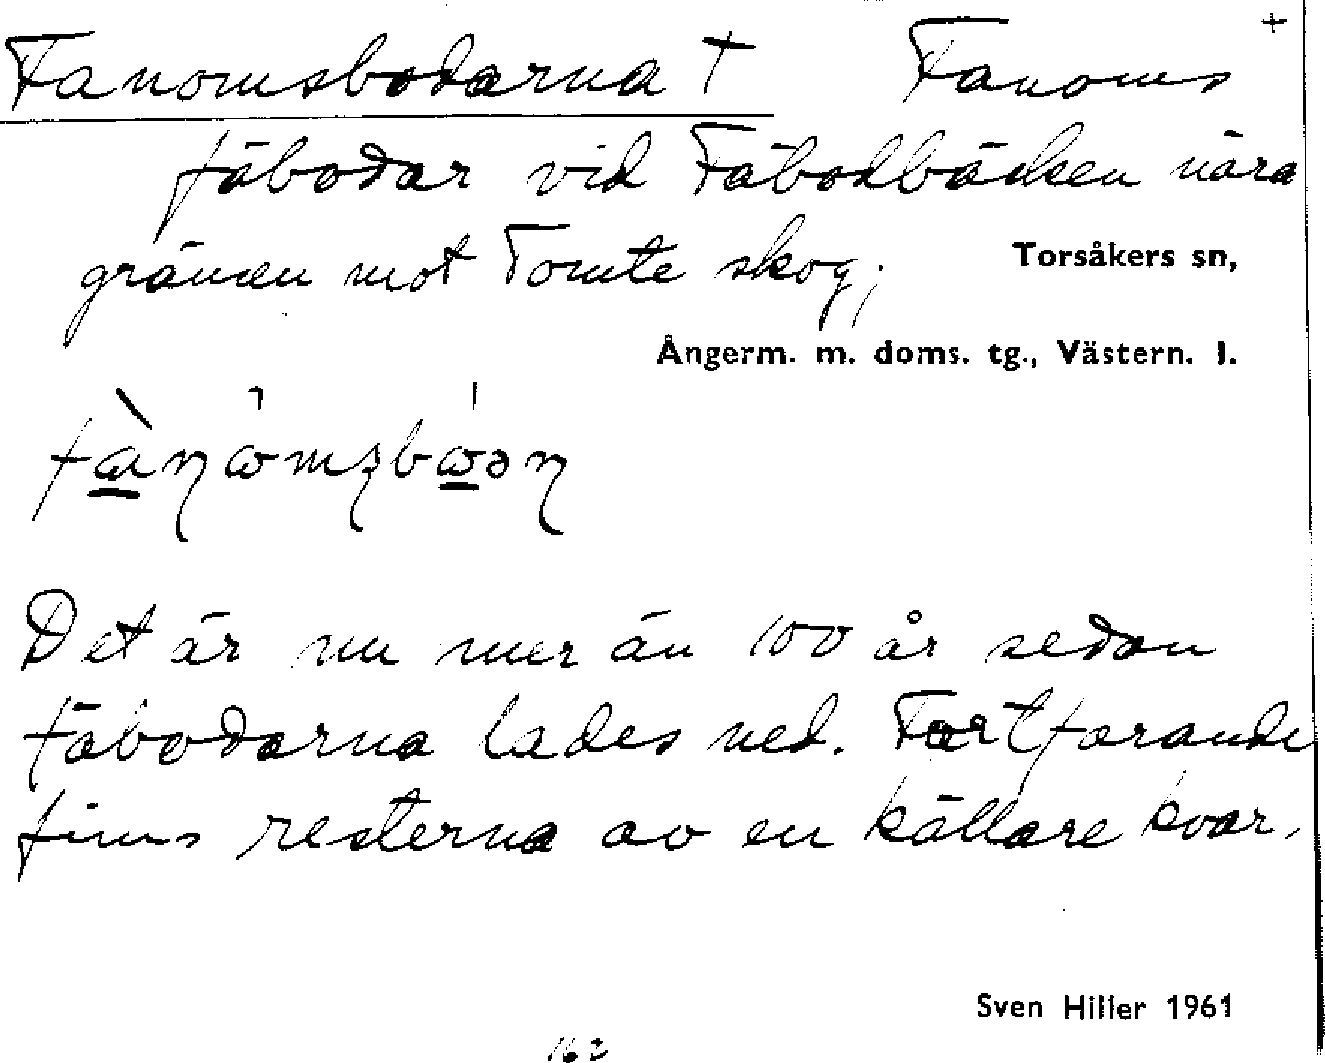 Fanomsbodarna † Fanoms +
fäbodar vid Fäbodbäcken nära
gränsen mot Tomte skog;
Torsåkers sn,
Ångerm. m. doms. tg., Västern. l.
Det är nu mer än 100 år sedan
fäbodarna lades ned. Fortfarande
finns resterna av en källare kvar.
Sven Hiller 1961
162